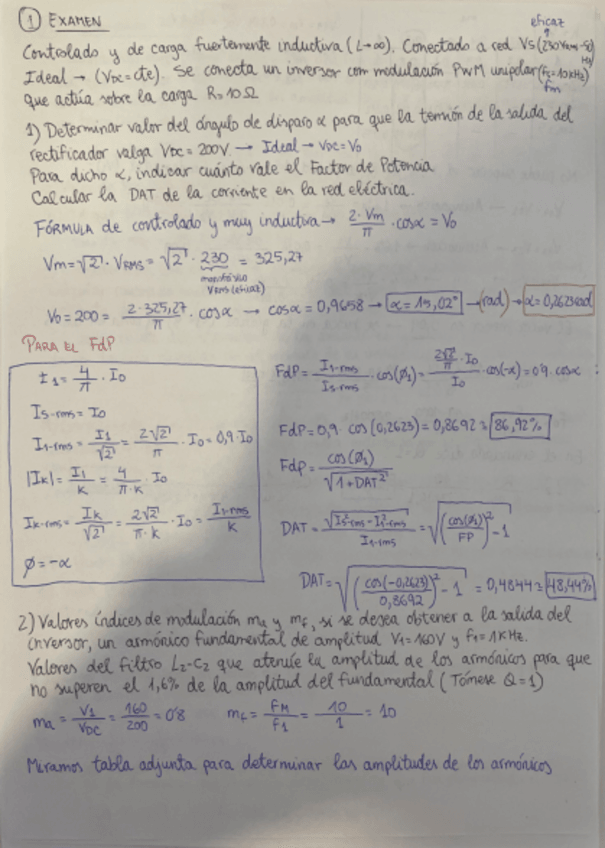 ① EXAMEN
eficaz
Controlado y de carga fuertemente inductiva (L→∞). Conectado a red Vs (230Vrms-50Hz)
Ideal → (VDC = cte). Se conecta un inversor con modulación PWM unipolar (fs=10kHz)
fm
que actúa sobre la carga R=10Ω
1) Determinar valor del ángulo de disparo α para que la tensión de la salida del
rectificador valga VDC = 200V. → Ideal → VDC = Vo
Para dicho α, indicar cuánto vale el Factor de Potencia
Calcular la DAT de la corriente en la red eléctrica.
FÓRMULA de controlado y muy inductiva → 2·Vm/π · cosα = Vo
Vm = √2 · VRMS = √2 · 230 = 325,27
monofásico
VRMS (eficaz)
Vo = 200 = 2·325,27/π · cosα → cosα = 0,9658 → α = 15,02° → (rad) → α = 0,2623rad
PARA EL FdP
I1 = 4/π · Io
Is-rms = Io
I1-rms = I1/√2 = 2√2/π · Io = 0,9·Io
|Ik| = I1/k = 4/π·k · Io
Ik-rms = Ik/√2 = 2√2/π·k · Io = I1-rms/k
ø = -α
FdP = I1-rms/Is-rms · cos(ø1) = 2√2/π · Io/Io · cos(-α) = 0'9 · cosα
FdP = 0,9 · cos(0,2623) = 0,8692 ≈ 86,92%
Fdp = cos(ø1)/√1+DAT²
DAT = √Is²-rms - I1²-rms/I1-rms = √(cos(ø1)/FP)² - 1
DAT = √(cos(-0,2623)/0,8692)² - 1 = 0,4844 ≈ 48,44%
2) Valores índices de modulación ma y mf, si se desea obtener a la salida del
inversor, un armónico fundamental de amplitud V1=160V y f1=1KHz.
Valores del filtro L2-C2 que atenúe la amplitud de los armónicos para que
no superen el 1,6% de la amplitud del fundamental (Tómese Q=1)
ma = V1/VDC = 160/200 = 0'8 mf = FM/F1 = 10/1 = 10
Miramos tabla adjunta para determinar las amplitudes de los armónicos